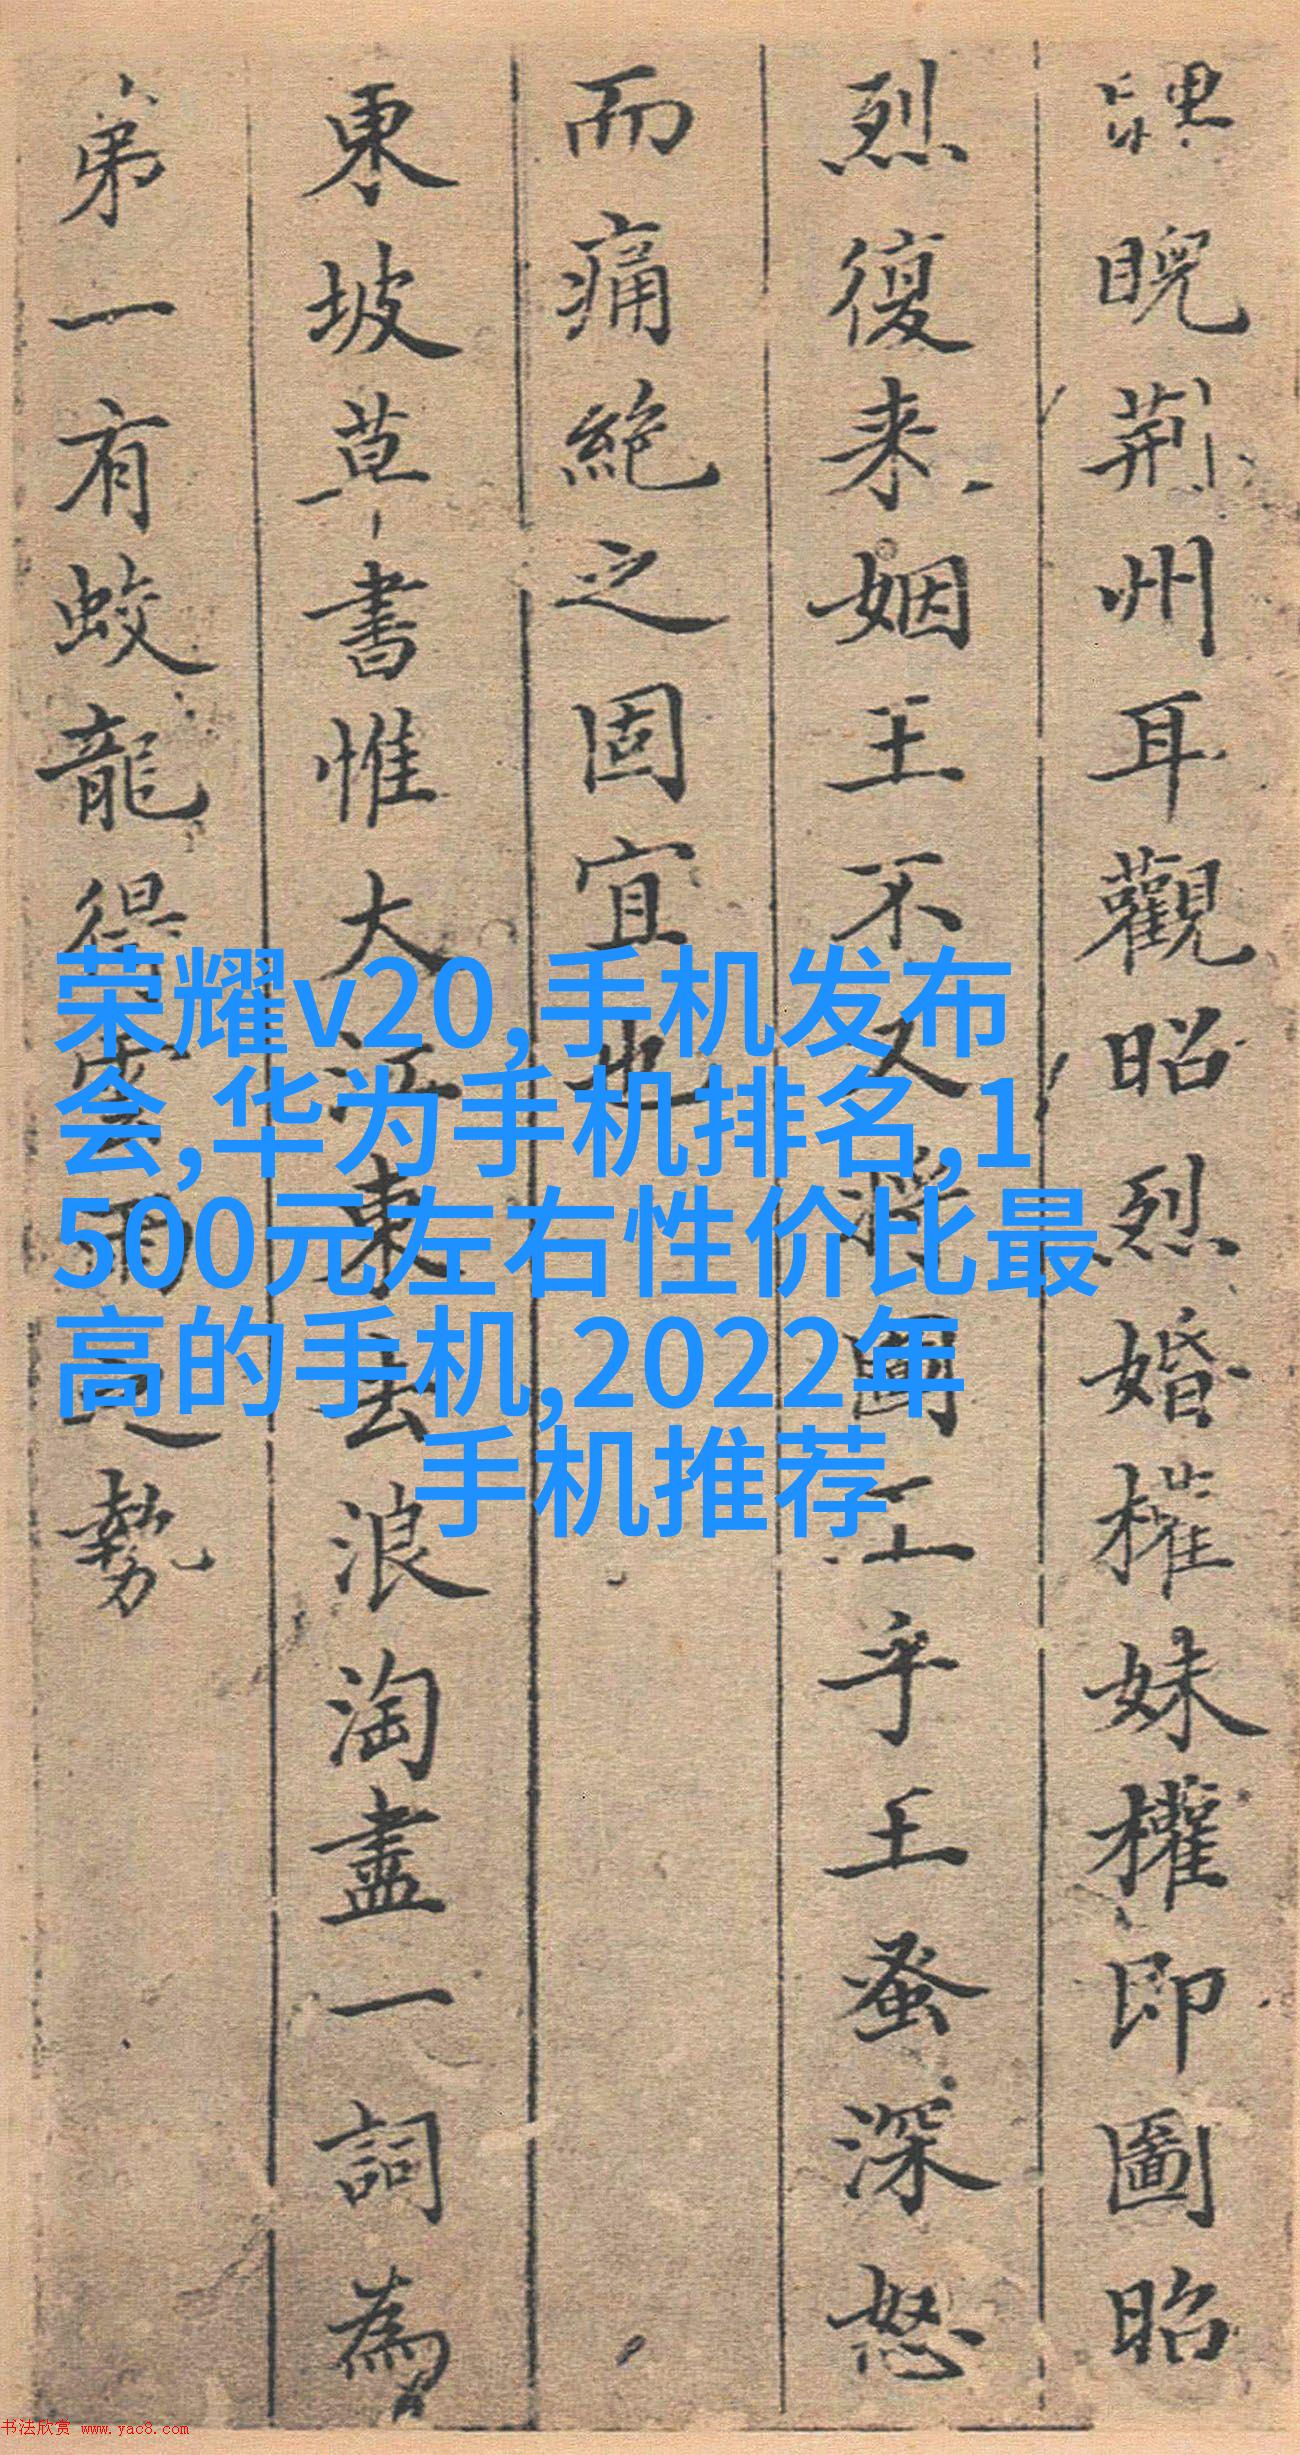 睨荆州耳觀昭烈婚權妹權即圖昭
烈復来姻王不又將圖王乎王蚤深怒
而痛絶之固宜也
東坡草書惟大江東去浪淘盡一詞為
弟一有蛟龍得雲雨之勢
荣耀v20,手机发布
会,华为手机排名,1
500元左右性价比最
高的手机,2022年
手机推荐
书法欣赏 www.yac8.com